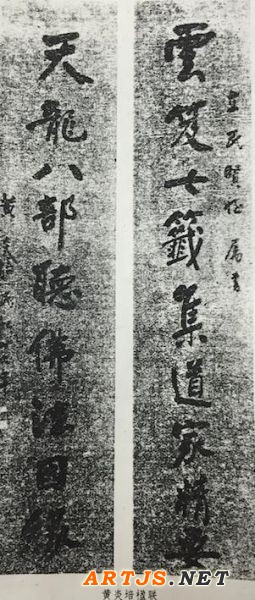 民賢姪屬書
雲笈七籤集道家精要
天龍八部聽佛法因緣
黃炎培
黄炎培楹联
ARTJS.NET